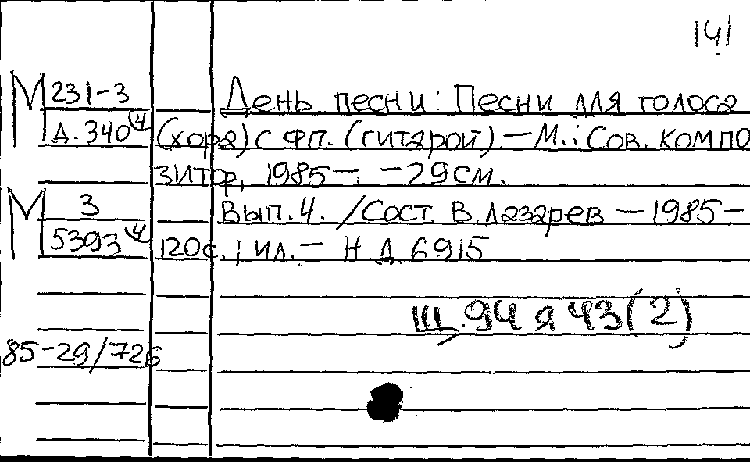 141
М 231-3
Д. 340 4
День песни: Песни для голоса
(хора) с фп. (гитарой) — М.: Сов. компо
зитор, 1985—. —29см.
М 3
5393 4
Вып. 4. /Сост. В. Лазарев — 1985 —
120с.; ил. — Н Д 6915
Щ. 94 я 43 (2)
85-29/726